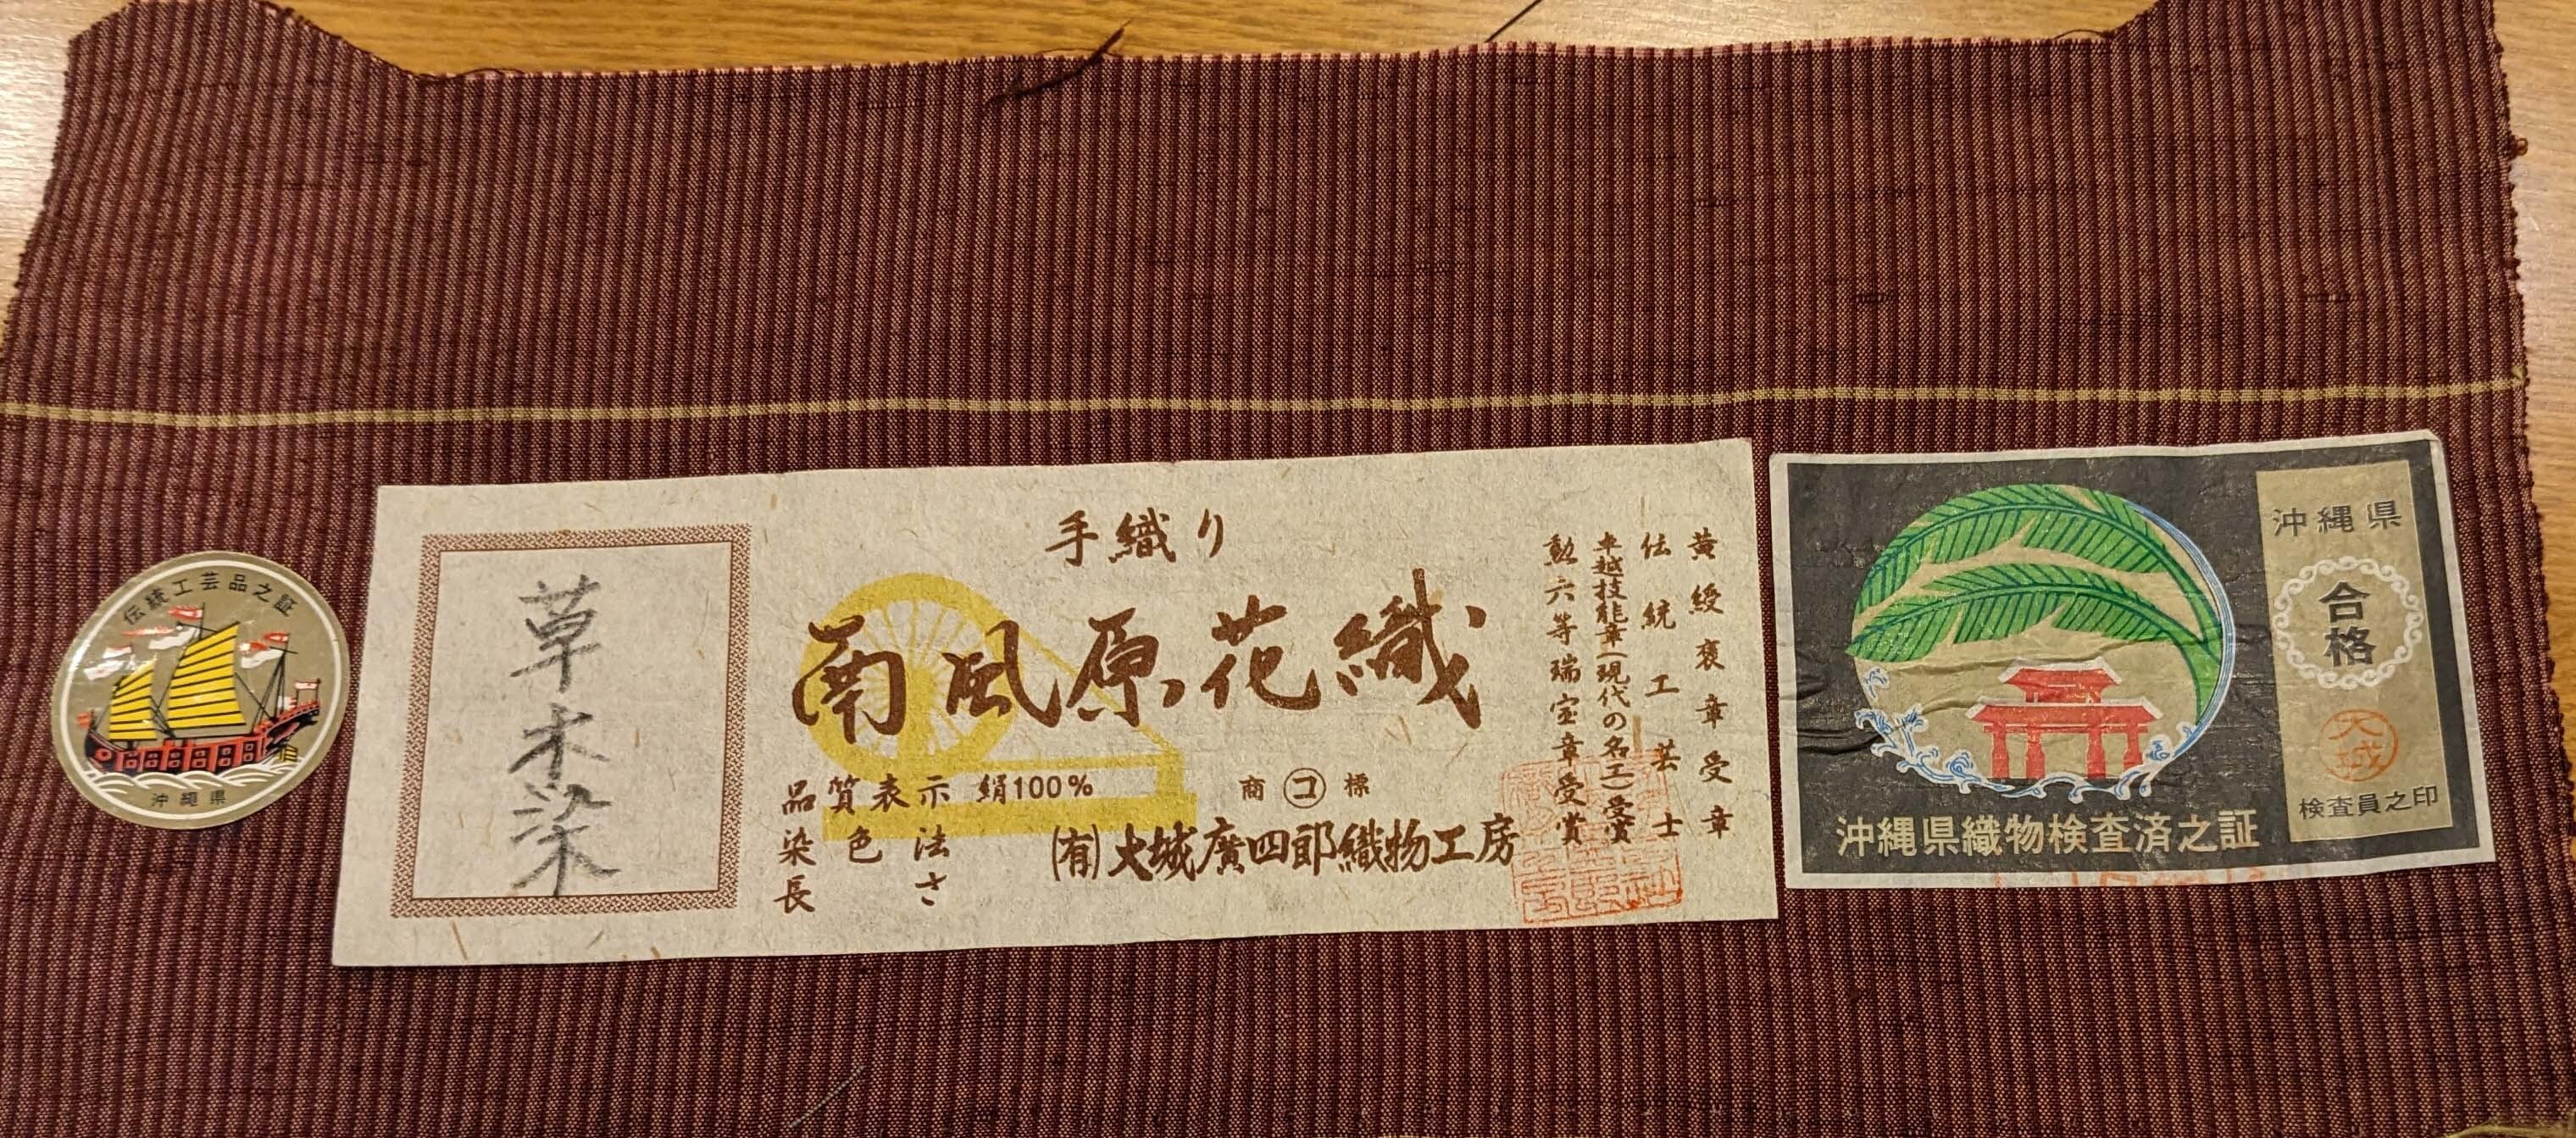 伝統工芸品之証
沖縄県
草木染
手織り
南風原花織
品質表示 絹100%
染色法
長さ
商 コ 標
(有)大城廣四郎織物工房
黄綬褒章受章
伝統工芸士
卓越技能章(現代の名工)受賞
勲六等瑞宝章受賞
沖縄県織物検査済之証
沖縄県
合格
大城
検査員之印